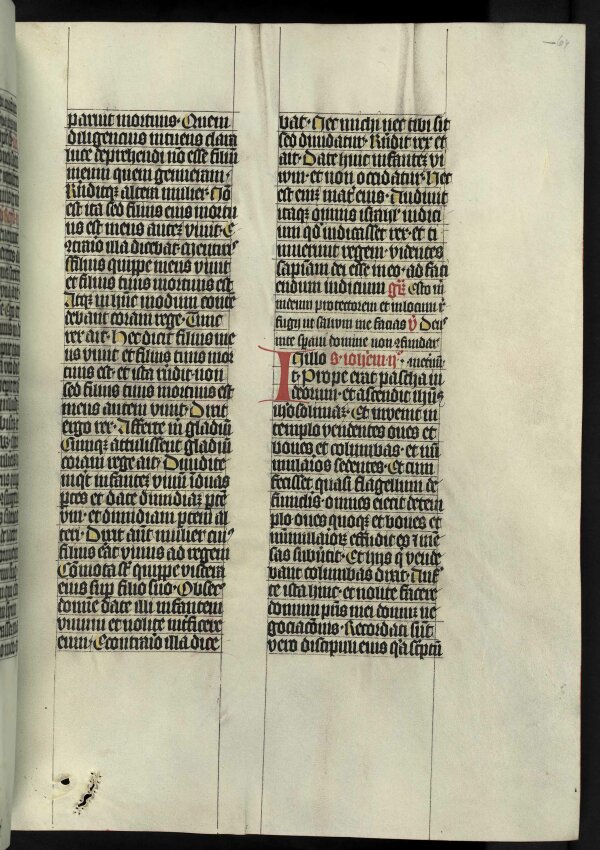 paruit mortuus. Quem
diligencius intuens clara
luce deprehendi nō esse filiū
meum quem genueram.
Rūditqꝫ altera mulier. Nō
est ita sed filius eius mortu
us est meus autem viuit. E
cͦtraio illa dicebat. Mentiris
filius quippe meus viuit
et filius tuus mortuus est
Atqꝫ in hūc modum conte
debant coram rege. Tunc
rex ait. Hec dicit filius me
us viuit et filius tuus mor
tuus est. et ista rn̄dit. non
sed filius tuus mortuus est
meus autem viuit. Dixit
ergo rex. Afferte m̄ gladiū
Cumqꝫ attulissent gladiū
coram rege ait. Diuidite
inqͥt infantē viuū ī duas
ꝑtes et date dimidiaꝫ ꝑtē
vni. et dimidiam ꝑtem al
teri. Dixit aūt mulier cuiꝰ
filius erat viuus ad regem
Cōmota sͭ quippe viscera
eius suꝑ filio suo. Obsecͦ
domīe date illi infantem
viuum et nolite interficere
eum. Econtraio illa dice
bat. Nec michi nec tibi sit
sed diuidatur. Rn̄dit rex et
ait. Date huic infantē vi
uum et non occidatur. Hec
est enī mater eius. Audiuit
itaqꝫ omnis israhel iudici
um qd̄ iudicasset rex. et ti
muerunt regem videntes
sapiam dei esse in eo. ad faci
endum iudicium gͬ Esto m̄
in deum protectorem et in locum r̄
fugij ut saluum me facias ꝟ Deus
in te speraui domine non cōfundar
In illo s. ioh̄em ij. metuūt
t. Prope erat pascha iu
deorum. et ascendit ihūs
iherosolimaꝫ. Et inuenit in
templo vendentes oues et
boues et columbas. et nū
mularios sedentes. Et cum
fecisset quasi flagellum de
funiclis. omnes eiecit de tem
plo oues quoqꝫ et boues et
nūmulariorꝫ effudit es 7 me
sas subuertit. Et hijs qͥ vende
bant columbas dixit. Aufer
te ista hinc. et nolite facere
domum pr̄is mei domum ne
gociacōnis. Recordati sūt
vero discipuli eius qͥa scͥptū